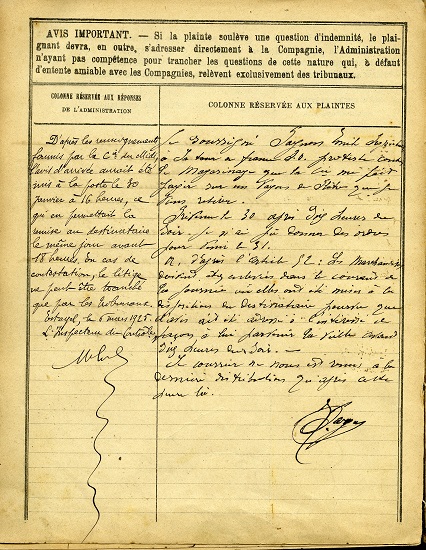 AVIS IMPORTANT. — Si la plainte soulève une question d'indemnité, le plai-
gnant devra, en outre, s'adresser directement à la Compagnie, l'Administration
n'ayant pas compétence pour trancher les questions de cette nature qui, à défaut
d'entente amiable avec les Compagnies, relèvent exclusivement des tribunaux.
COLONNE RÉSERVÉE AUX RÉPONSES
DE L'ADMINISTRATION
D'après les renseignements
fournis par la Cie du Midi,
l'avis d'arrivée aurait été
mis à la poste le 30
janvier à 16 heures, ce
qui en permettait la
remise au destinataire
le même jour avant
18 heures. En cas de
contestation, le litige
ne peut être tranché
que par les tribunaux.
Estagel, le 6 mars 1925.
L'Inspecteur du Contrôle
COLONNE RÉSERVÉE AUX PLAINTES
Je soussigné
à La tour de france proteste contre
le Magasinage que la Cie me fait
payer sur un wagon de
retirer.
le 30 après dix heures du
soir. Je n'ai donner des ordres
pour le 31.
d'après l'article Les Marchandises
doivent être enlevées dans le courant de
la journée où elles ont été mises à la
disposition du destinataire pourvu que
l'avis ait été adressé à l'intéressé de
façon à lui parvenir la veille avant
dix heures du soir. —
Le courrier ne nous est venu à la
dernière distribution qu'après cette
heure là.